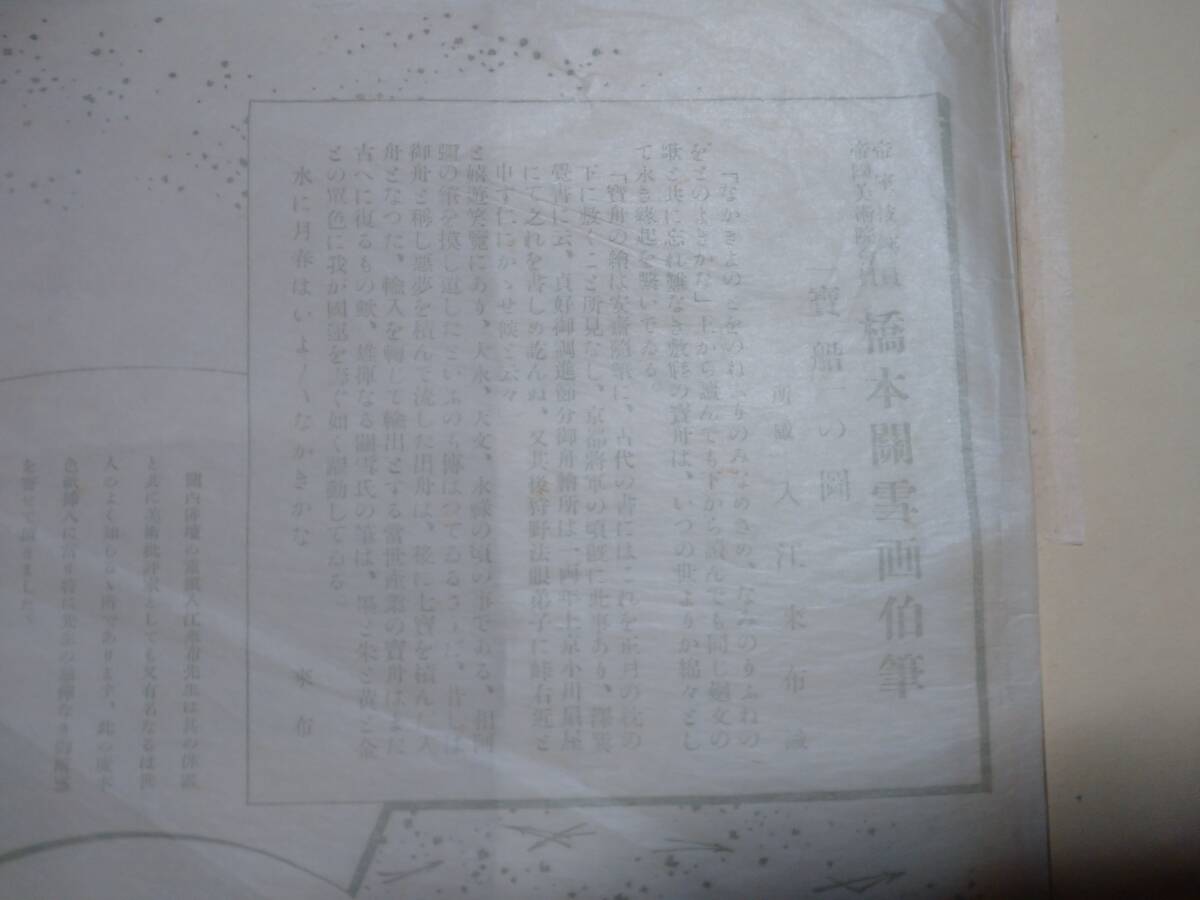 帝室技藝員
帝國美術院會員
橋本關雪画伯筆
「寶船」の圖
所感 入江來布識
「なかきよのとをのねふりのみなめさめ、なみのりふねの
をとのよきかな」上から讀んでも下から讀んでも同し廻文の
歌と共に忘れ難なき敷形の寶舟は、いつの世よりか綿々とし
て永き緣起を繫いでゐる。
「寶舟の繪は安齋隨筆に、古代の書にはこれを正月の枕の
下に敷くこと所見なし、京都將軍の頃既に此事あり、澤巽
覺書に云、貞好御調進節分御舟繪所は一両年上京小川扇屋
にて之れを書しめ訖んぬ、又其後狩野法眼弟子に峰右近と
申す仁にかゝせ候と云々
と嬉遊笑覽にあり、大永、天文、永祿の頃の事である、相阿
彌の筆を摸し遺したといふのも傳はつてゐるさうだ、昔しは
御舟と稱し惡夢を積んで流した出舟は、後に七寶を積んだ入
舟となつた、輸入を轉して輸出とする當世產業の寶舟はまた
古へに復るもの歟、雄揮なる關雪氏の筆は、墨と朱と黃と金
との單色に我が國運を壽ぐ如く躍動してゐる。
水に月春はいよ／＼なかきかな 來布
關西俳壇の重鎭入江來布先生は其の俳歴
と共に美術批評家としても又有名なるは世
人のよく知らるゝ所であります、此の度本